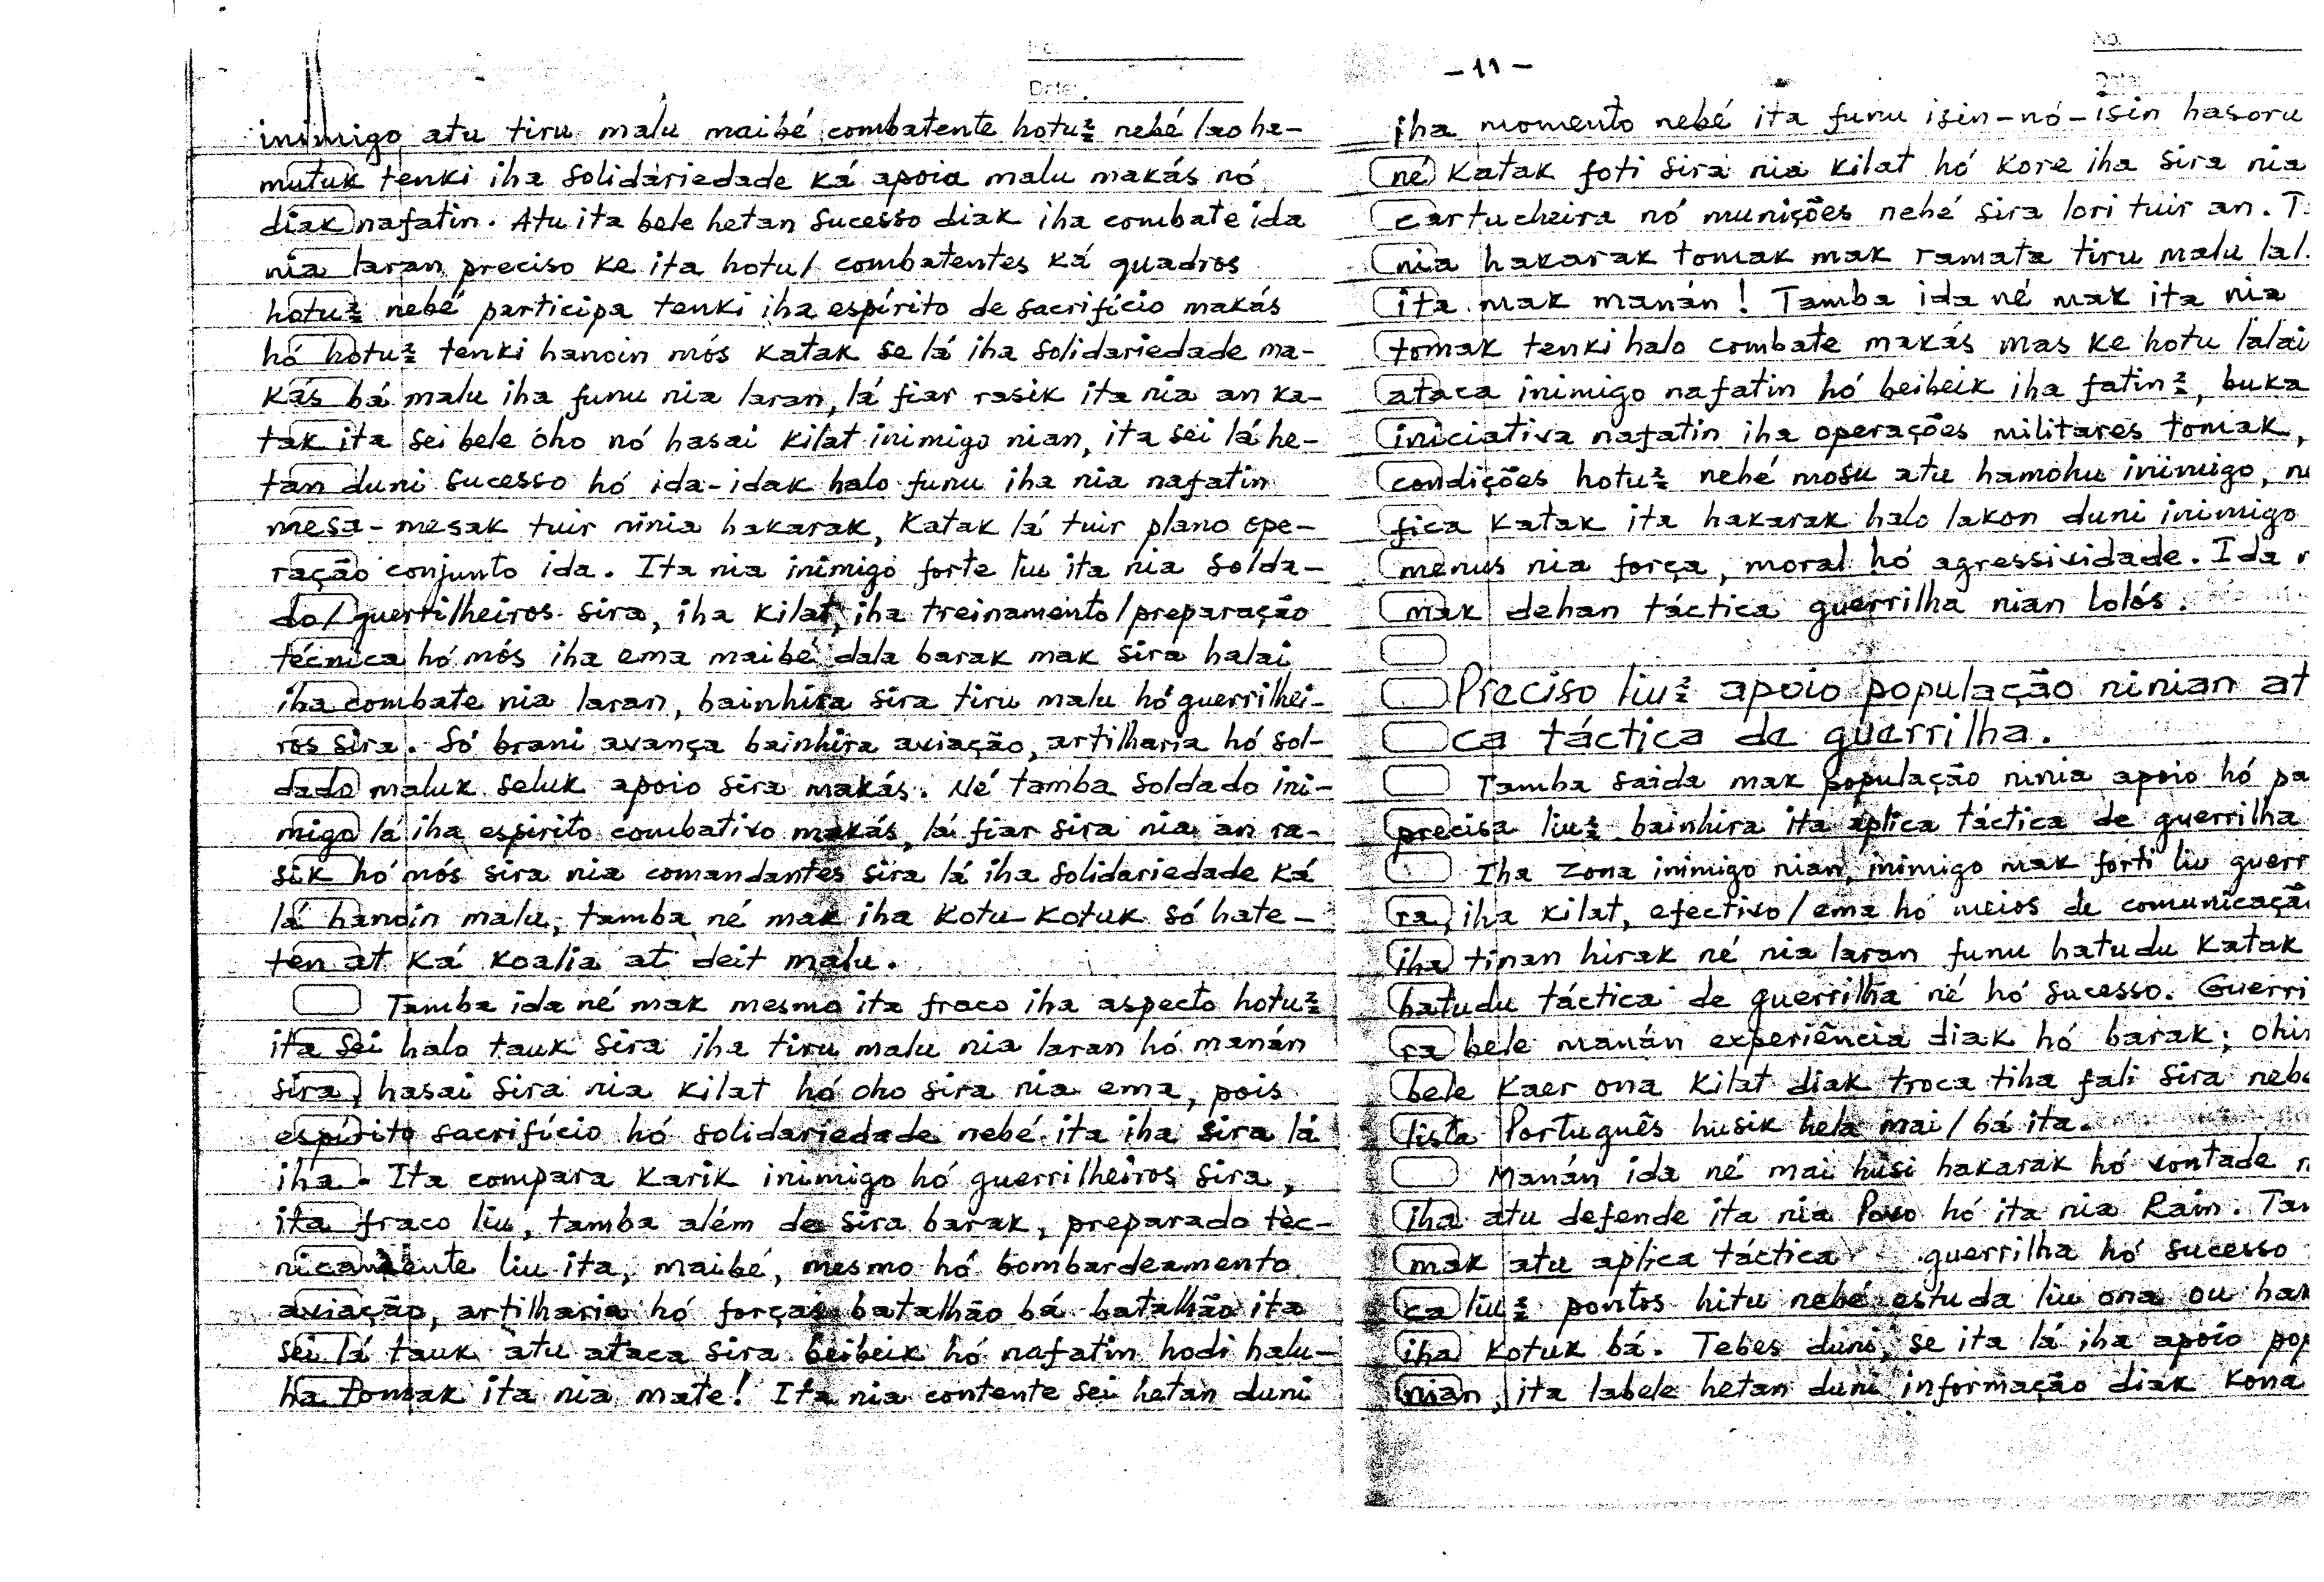 No.
Date:
inimigo atu tiru malu maibé combatente hotu² nebé lao ha-
mutuk tenki iha solidariedade ká apoia malu makás nó
diak nafatin. Atu ita bele hetan sucesso diak iha combate ida
nia laran preciso ke ita hotu/ combatentes ká quadros
hotu² nebé participa tenki iha espírito de sacrifício makás
hó hotu² tenki hanoin mós katak se lá iha solidariedade ma-
kás bá malu iha funu nia laran, lá fiar rasik ita nia an ka-
tak ita sei bele oho nó hasai kilat inimigo nian, ita sei lá he-
tan duni sucesso hó ida-idak halo funu iha nia nafatin
mesa-mesak tuir ninia hakarak, katak lá tuir plano ope-
ração conjunto ida. Ita nia inimigo forte liu ita nia solda-
do/guerrilheiros sira, iha kilat, iha treinamento/preparação
técnica hó mós iha ema maibé dala barak mak sira halai
iha combate nia laran, bainhira sira tiru malu hó guerrilhei-
ros sira. Só brani avança bainhira aviação, artilharia hó sol-
dado maluk seluk apoio sira makás. Né tamba soldado ini-
migo lá iha espirito combativo makás, lá fiar sira nia an ra-
sik hó mós sira nia comandantes sira lá iha solidariedade ká
lá hanoin malu, tamba né mak iha kotu-kotuk só hate-
ten at ká koalia at deit malu.
Tamba ida né mak mesmo ita fraco iha aspecto hotu²
ita sei halo tauk sira iha tiru malu nia laran hó manán
sira, hasai sira nia kilat hó oho sira nia ema, pois
espírito sacrifício hó solidariedade nebé ita iha sira lá
iha. Ita compara karik inimigo hó guerrilheiros sira,
ita fraco liu, tamba além de sira barak, preparado tèc-
nicamente liu ita, maibé, mesmo hó bombardeamento
aviação, artilharia hó forças batalhão bá batalhão ita
sei lá tauk atu ataca sira beibeik hó nafatin hodi halu-
ha tomak ita nia mate! Ita nia contente sei hetan duni
No.
Date:
-11-
iha momento nebé ita funu isin-nó-isin hasoru
né katak foti sira nia kilat hó kore iha sira nia
cartucheira nó munições nebé sira lori tuir an.
nia hakarak tomak mak ramata tiru malu
ita mak manán! Tamba ida né mak ita nia
tomak tenki halo combate makás mas ke hotu lalai
ataca inimigo nafatin hó beibeik iha fatin², buka
iniciativa nafatin iha operações militares tomak,
condições hotu² nebé mosu atu hamohu inimigo,
fica katak ita hakarak halo lakon duni inimigo
menus nia força, moral hó agressividade. Ida
mak dehan táctica guerrilha nian lolós.
Preciso liu² apoio população ninian at
ca táctica de guerrilha.
Tamba saida mak população ninia apoio hó pa
precisa liu² bainhira ita aplica táctica de guerrilha
Iha zona inimigo nian, inimigo mak forti liu guerr
ra, iha kilat, efectivo/ema hó meios de comunicaçã
iha tinan hirak né nia laran funu hatudu katak
hatudu táctica de guerrilha né hó sucesso. Guerri
ra bele manán experiência diak hó barak; ohi
bele kaer ona kilat diak troca tiha fali sira neb
lista Português husik hela mai/bá ita.
Manán ida né mai husi hakarak hó vontade
iha atu defende ita nia Povo hó ita nia Rain. Ta
mak atu aplica táctica guerrilha hó sucesso
ca liu² pontos hitu nebé estuda liu ona ou ha
iha kotuk bá. Tebes duni, se ita lá iha apoio pop
nian, ita labele hetan duni informação diak kona